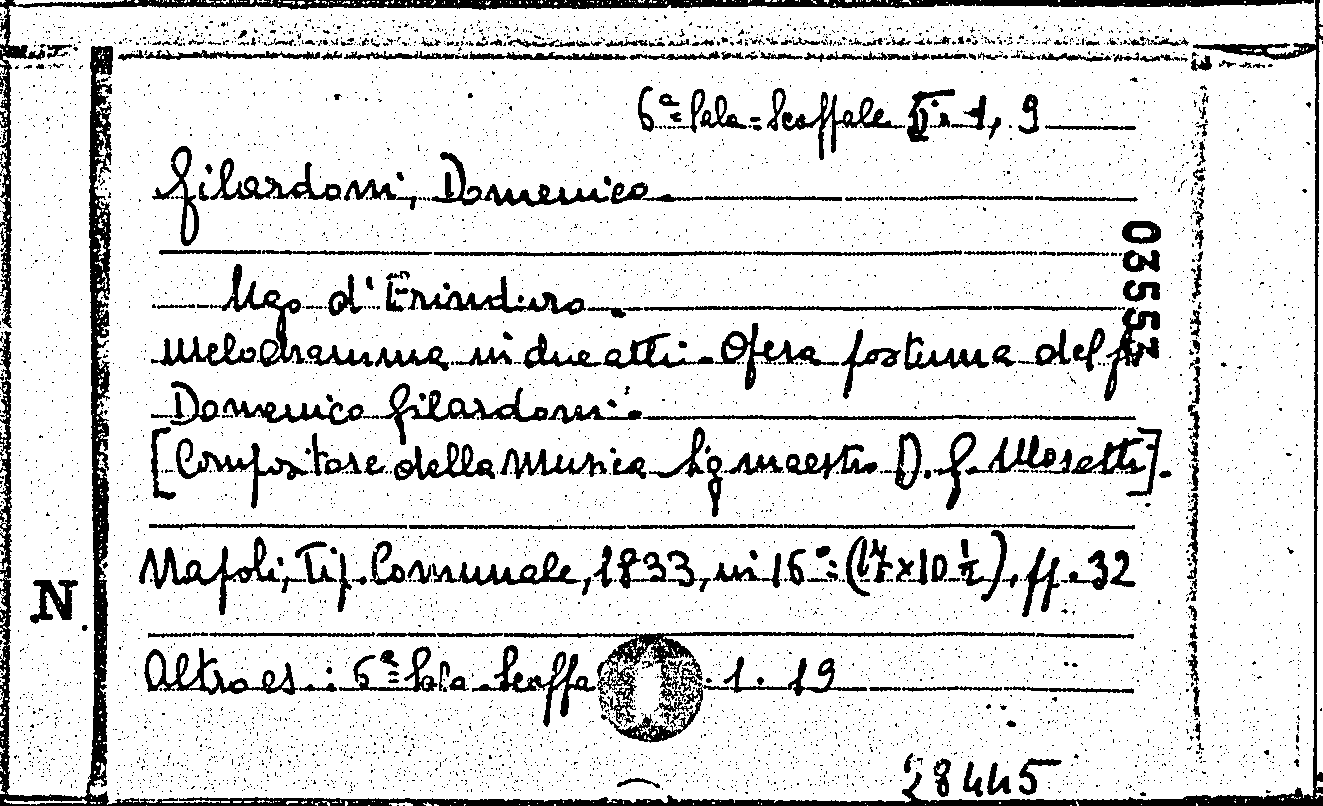 6ª Sala = Scaffale II. 1, 9
Gilardoni, Domenico.
03553
Ugo d'Erinduro.
Melodramma in due atti. Opera postuma del
Domenico Gilardoni.
[Compositore della Musica Sig maestro D. G. Mosetti].
Napoli, Tip. Comunale, 1833, in 16°: (17x10 ½), pp. 32
N
Altro es.: 6ª Sala. Scaffa . 1. 19
28445